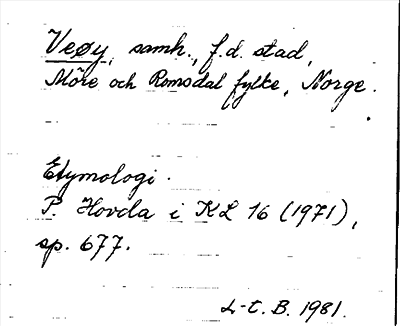 Veøy, samh., f.d. stad,
Möre och Romsdal fylke, Norge.
Etymologi.
P. Hovda i KL 16 (1971),
sp. 677.
L-t. B. 1981.